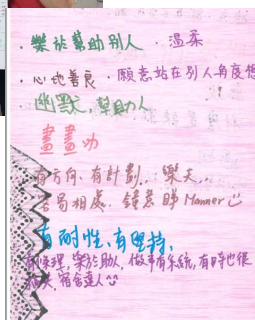 · 樂於幫助別人 · 溫柔
· 心地善良 · 願意站在別人角度想
幽默, 幫助人
畫畫叻
有方向. 有計劃. 樂天.
容易相處. 鍾意睇 Manner
有耐性, 有堅持,
有條理, 樂於助人, 做事有系統, 有時也很
宿舍達人